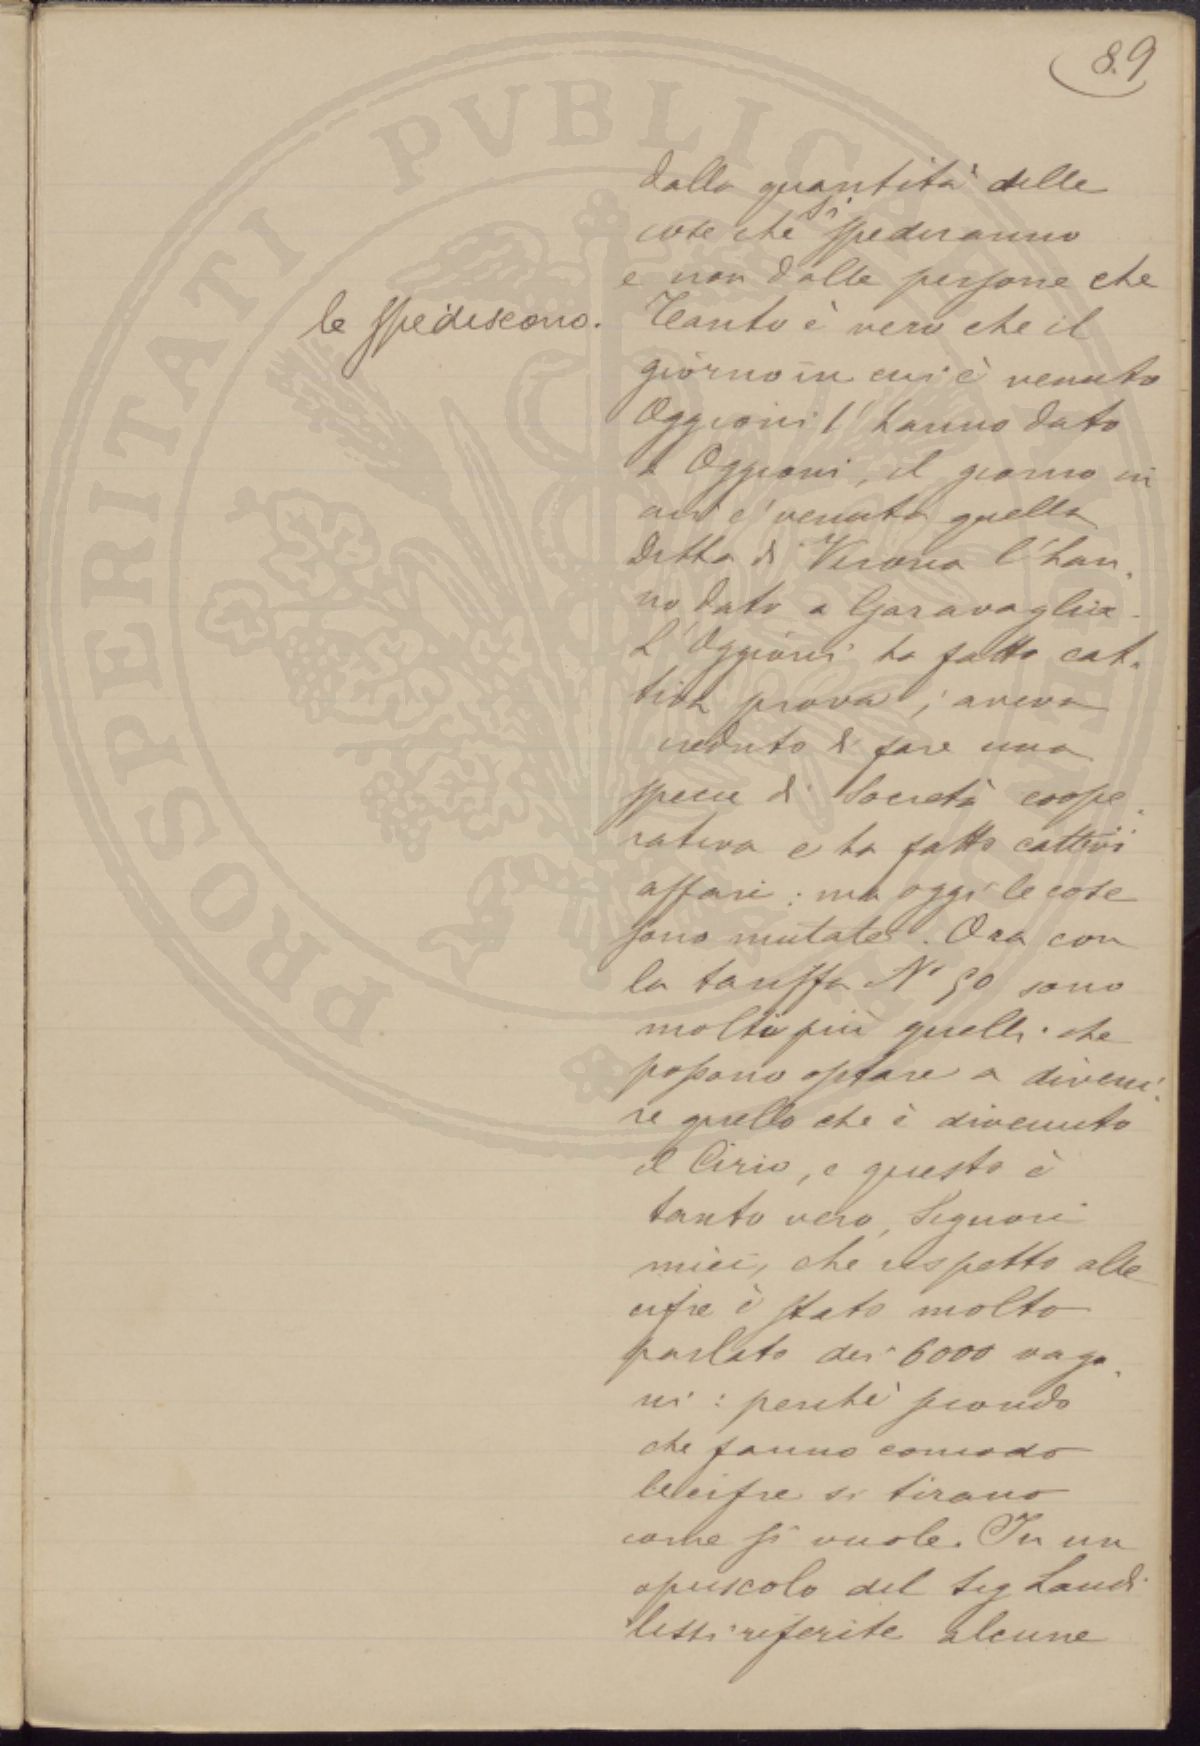 8.9
dalla quantità delle
cose che si spediranno
e non dalle persone che
le spediscono.
Tanto è vero che il
giorno in cui è venuto
Oggioni l'hanno dato
a Oggioni, il giorno in
cui è venuta quella
Ditta di Verona l'han-
no dato a Garavaglia.
L'Oggioni ha fatto cat-
tiva prova; aveva
creduto di fare una
specie di Società coope-
rativa e ha fatto cattivi
affari: ma oggi le cose
sono mutate. Ora con
la tariffa No 50 sono
molti più quelli che
possono optare a diveni-
re quello che è divenuto
il Cirio, e questo è
tanto vero, Signori
miei, che rispetto alle
cifre è stato molto
parlato dei 6000 vago-
ni: perchè secondo
che fanno comodo
le cifre si tirano
come si vuole. In un
opuscolo del Sig Landi
lessi riferite alcune
PROSPERITATI PVBLICAE